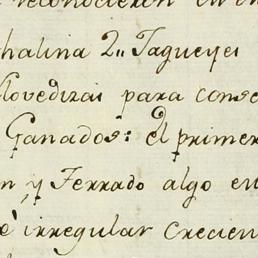 reconocieron en
thalina 2,, Tagueyes
llovedizas para conse
Ganados: el primer
n y Ferrado algo en
è irregular crecien